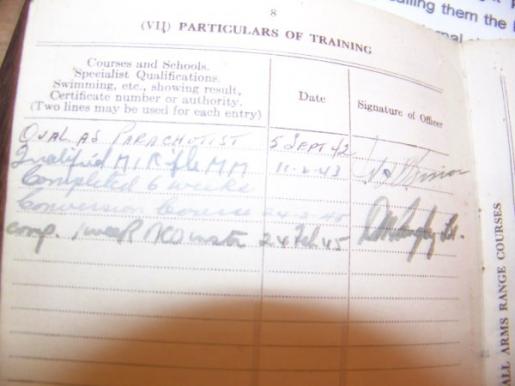 8
(VII) PARTICULARS OF TRAINING
Courses and Schools.
Specialist Qualifications.
Swimming, etc., showing result,
Certificate number or authority.
(Two lines may be used for each entry)
Date
Signature of Officer
QUAL AS PARACHUTIST 5 SEPT 42
Qualified M1 Rifle MM 11-2-43
Completed 6 weeks
Conversion Course 24-2-45
comp. 1 week NCO 24 Feb 45
ALL ARMS RANGE COURSES
alling them the